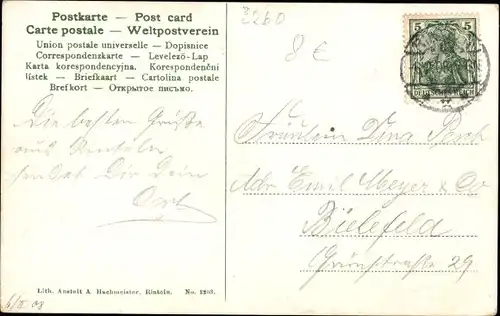 Postkarte — Post card
Carte postale — Weltpostverein
Union postale universelle — Dopisnice
Correspondenzkarte — Levelező-Lap
Karta korespondencyjna. Korespondenční
lístek — Briefkaart — Cartolina postale
Brefkort — Открытое письмо.
3260
8 €
5 5
DEUTSCHES REICH
Die besten Grüße
aus Rinteln
sendet Dir Dein
Fräulein
Adr. Emil Meyer & Co
Bielefeld
29
Lith. Anstalt A. Hachmeister, Rinteln. No. 2203.